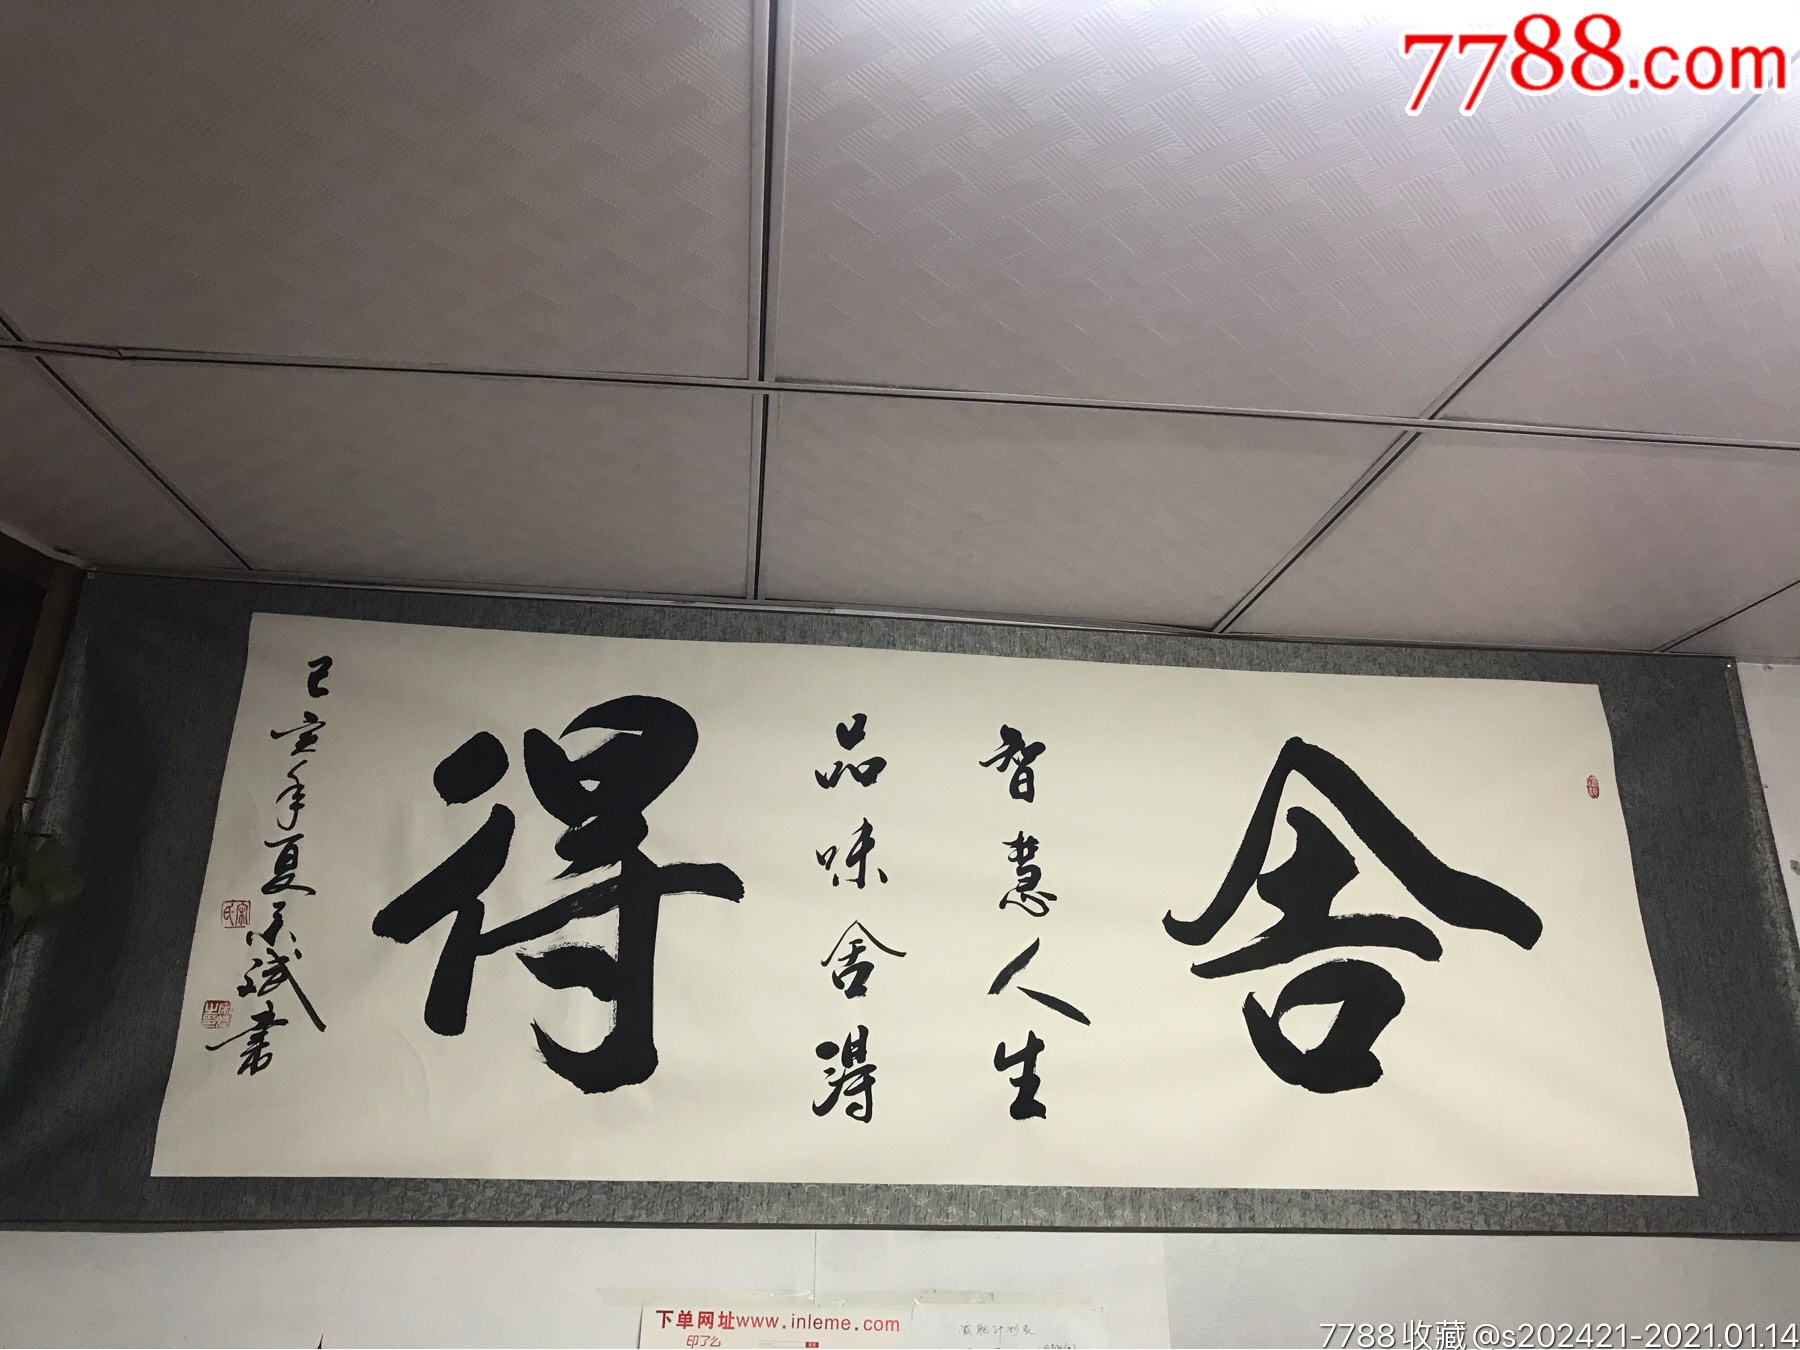 7788.com
舍
智慧人生
品味舍得
得
己亥年夏
斌书
下单网址www.inleme.com
印了么
减肥计划表
7788收藏@s202421-2021.01.14